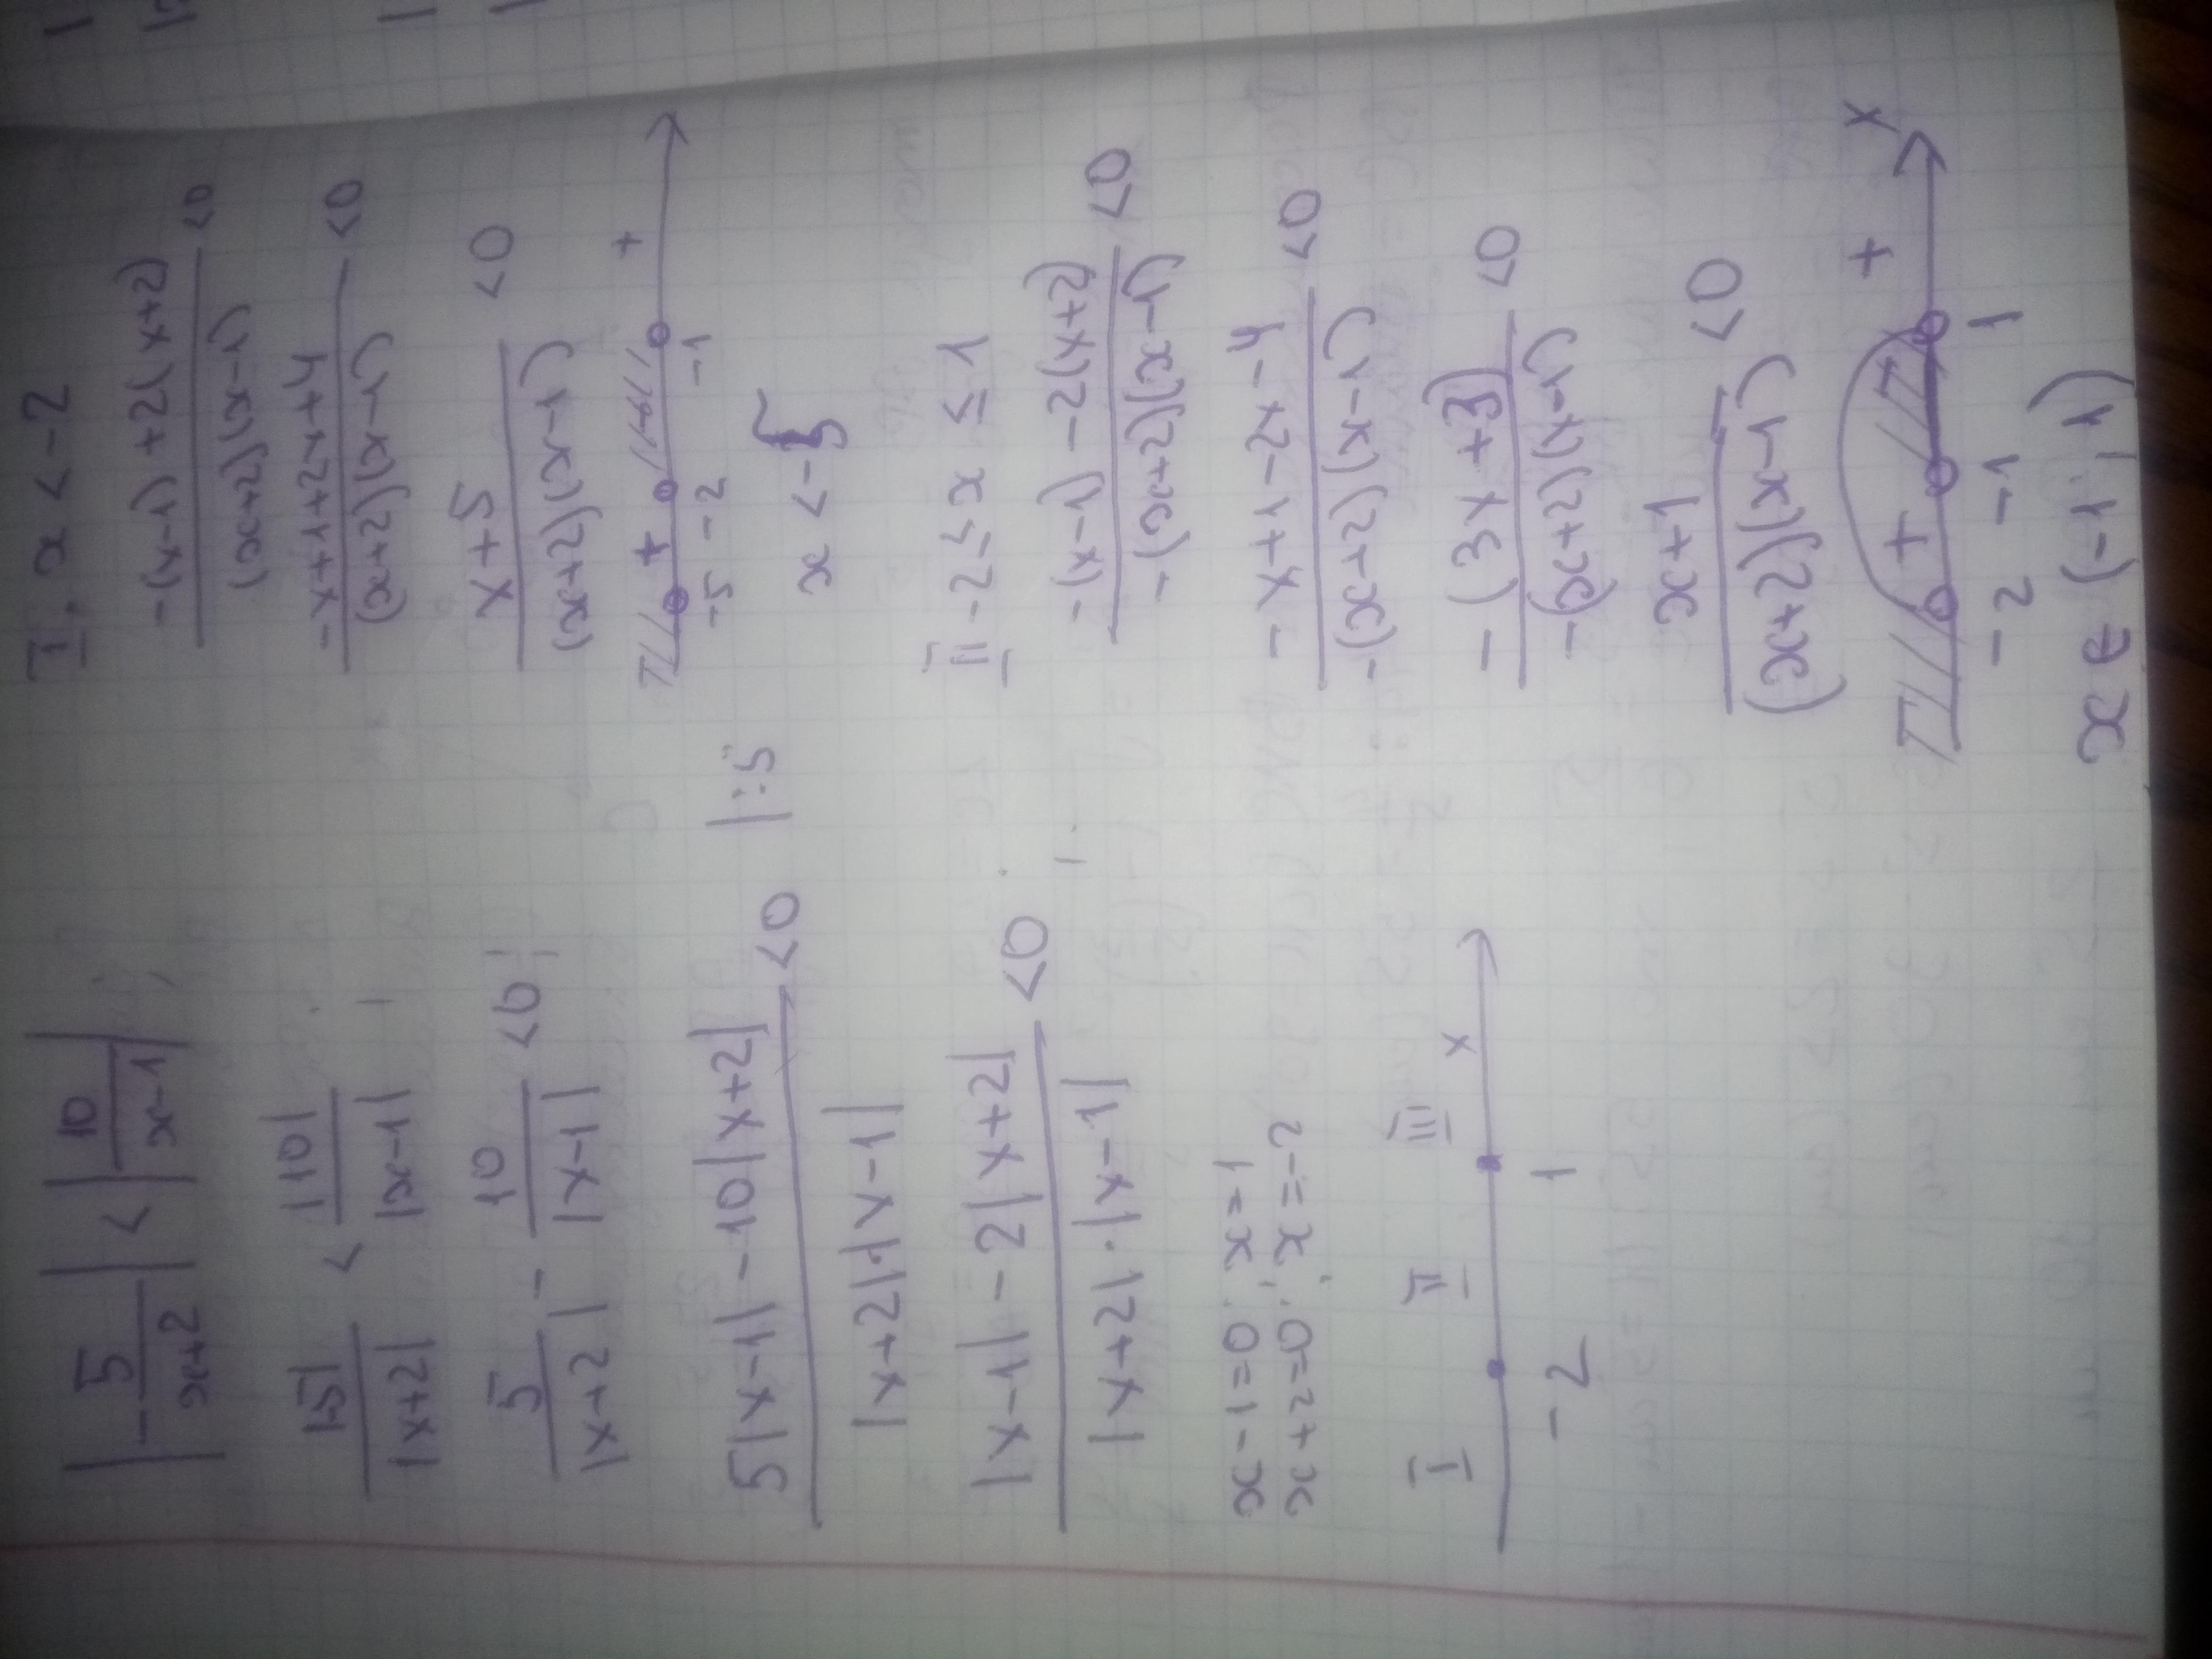 |-5/(x+2)| < |10/(x-1)|
|-5|/|x+2| < |10|/|x-1|
5/|x+2| - 10/|x-1| <0
(5|x-1| - 10|x+2|)/(|x+2|·|x-1|) <0 |:5
(|x-1| - 2|x+2|)/(|x+2|·|x-1|) <0
x-1=0; x=1
x+2=0; x=-2
I II III x
-2 1
I. x < -2
(-(x-1)+2(x+2))/((x+2)(x-1)) <0
(-x+1+2x+4)/((x+2)(x-1)) <0
(x+5)/((x+2)(x-1)) <0
+ +
-5 -2 -1
x < -5
II -2 ≤ x ≤ 1
(-(x-1) - 2(x+2))/(-(x+2)(x-1)) <0
(-x+1-2x-4)/(-(x+2)(x-1)) <0
(-(3x+3))/(-(x+2)(x-1)) <0
(x+1)/((x+2)(x-1)) <0
+ + x
-2 -1 1
x ∈ (-1; 1)